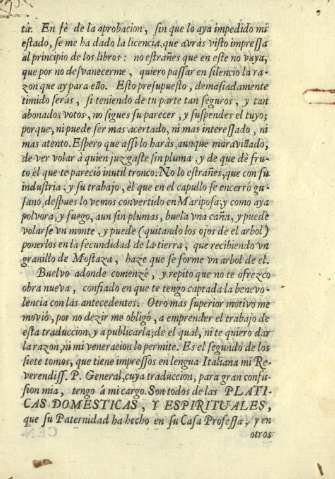 tir. En fè de la aprobacion, sin que lo aya impedido mi
estado, se me ha dado la licencia, que avràs visto impressa
al principio de los libros: no estrañes que en este no vaya,
que por no desvanecerme, quiero passar en silencio la ra-
zon que ay para ello. Esto presupuesto, demasiadamente
timido seràs, si teniendo de tu parte tan seguros, y tan
abonados votos, no sigues su parecer, y suspendes el tuyo;
porque, ni puede ser mas acertado, ni mas interessado, ni
mas atento. Espero que assi lo haràs, aunque maravillado,
de ver volar à quien juzgaste sin pluma, y de que dè fru-
to èl que te pareciò inutil tronco: No lo estrañes, que con su
industria, y su trabajo, èl que en el capullo se encerrò gu-
sano, despues lo vemos convertido en Mariposa; y como aya
polvora, y fuego, aun sin plumas, buela vna caña, y puede
volarse vn monte, y puede (quitando los ojos de el arbol)
ponerlos en la fecundidad de la tierra, que recibiendo vn
granillo de Mostaza, haze que se forme vn arbol de el.
Buelvo adonde comenzè, y repito que no te ofrezco
obra nueva, confiado en que te tengo captada la benevo-
lencia con las antecedentes. Otro mas superior motivo me
movió, por no dezir me obligó, a emprender el trabajo de
esta traduccion, y a publicarla; de el qual, ni te quiero dar
la razon, ni mi veneracion lo permite. Es el segundo de los
siete tomos, que tiene impressos en lengua Italiana mi Re-
verendiss. P. General, cuya traduccion, para gran confus-
sion mia, tengo à mi cargo. Son todos de las PLATI-
CAS DOMESTICAS, Y ESPIRITUALES,
que su Paternidad ha hecho en su Casa Professa, y en
otros